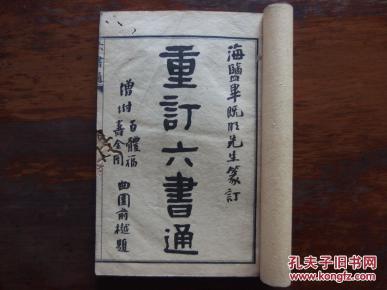 海鹽畢既明先生篆訂
重訂六書通
增附百體福
壽全圖
曲園俞樾題
六書通
孔夫子旧书网